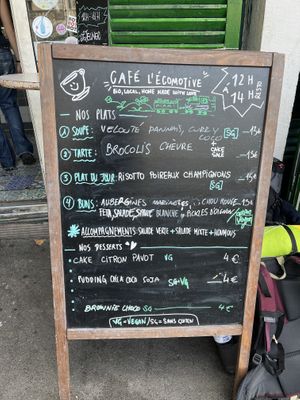 CAFÉ L'ÉCOMOTIVE
BIO, LOCAL, HOME MADE WITH LOVE
12H
À 14H
RESTO
- NOS PLATS
① SOUPE: VELOUTÉ PANNAIS, CURRY COCO SG
② TARTE: BROCOLIS CHEVRE
+ CAKE SALÉ
③ PLAT DU JOUR: RISOTTO POIREAUX CHAMPIGNONS
SG
④ BUNS: AUBERGINES MARINÉES, CHOU ROUGE
FETA, SAUCE BLANCHE, PICKLES OIGNON
* ACCOMPAGNEMENTS: SALADE VERTE + SALADE MIXTE + HOUMOUS
- NOS DESSERTS
- CAKE CITRON PAVOT VG 4€
- PUDDING CHIA COCO SOJA SG+VG 4€
- BROWNIE CHOCO SG 4€
VG = VEGAN / SG = SANS GLUTEN